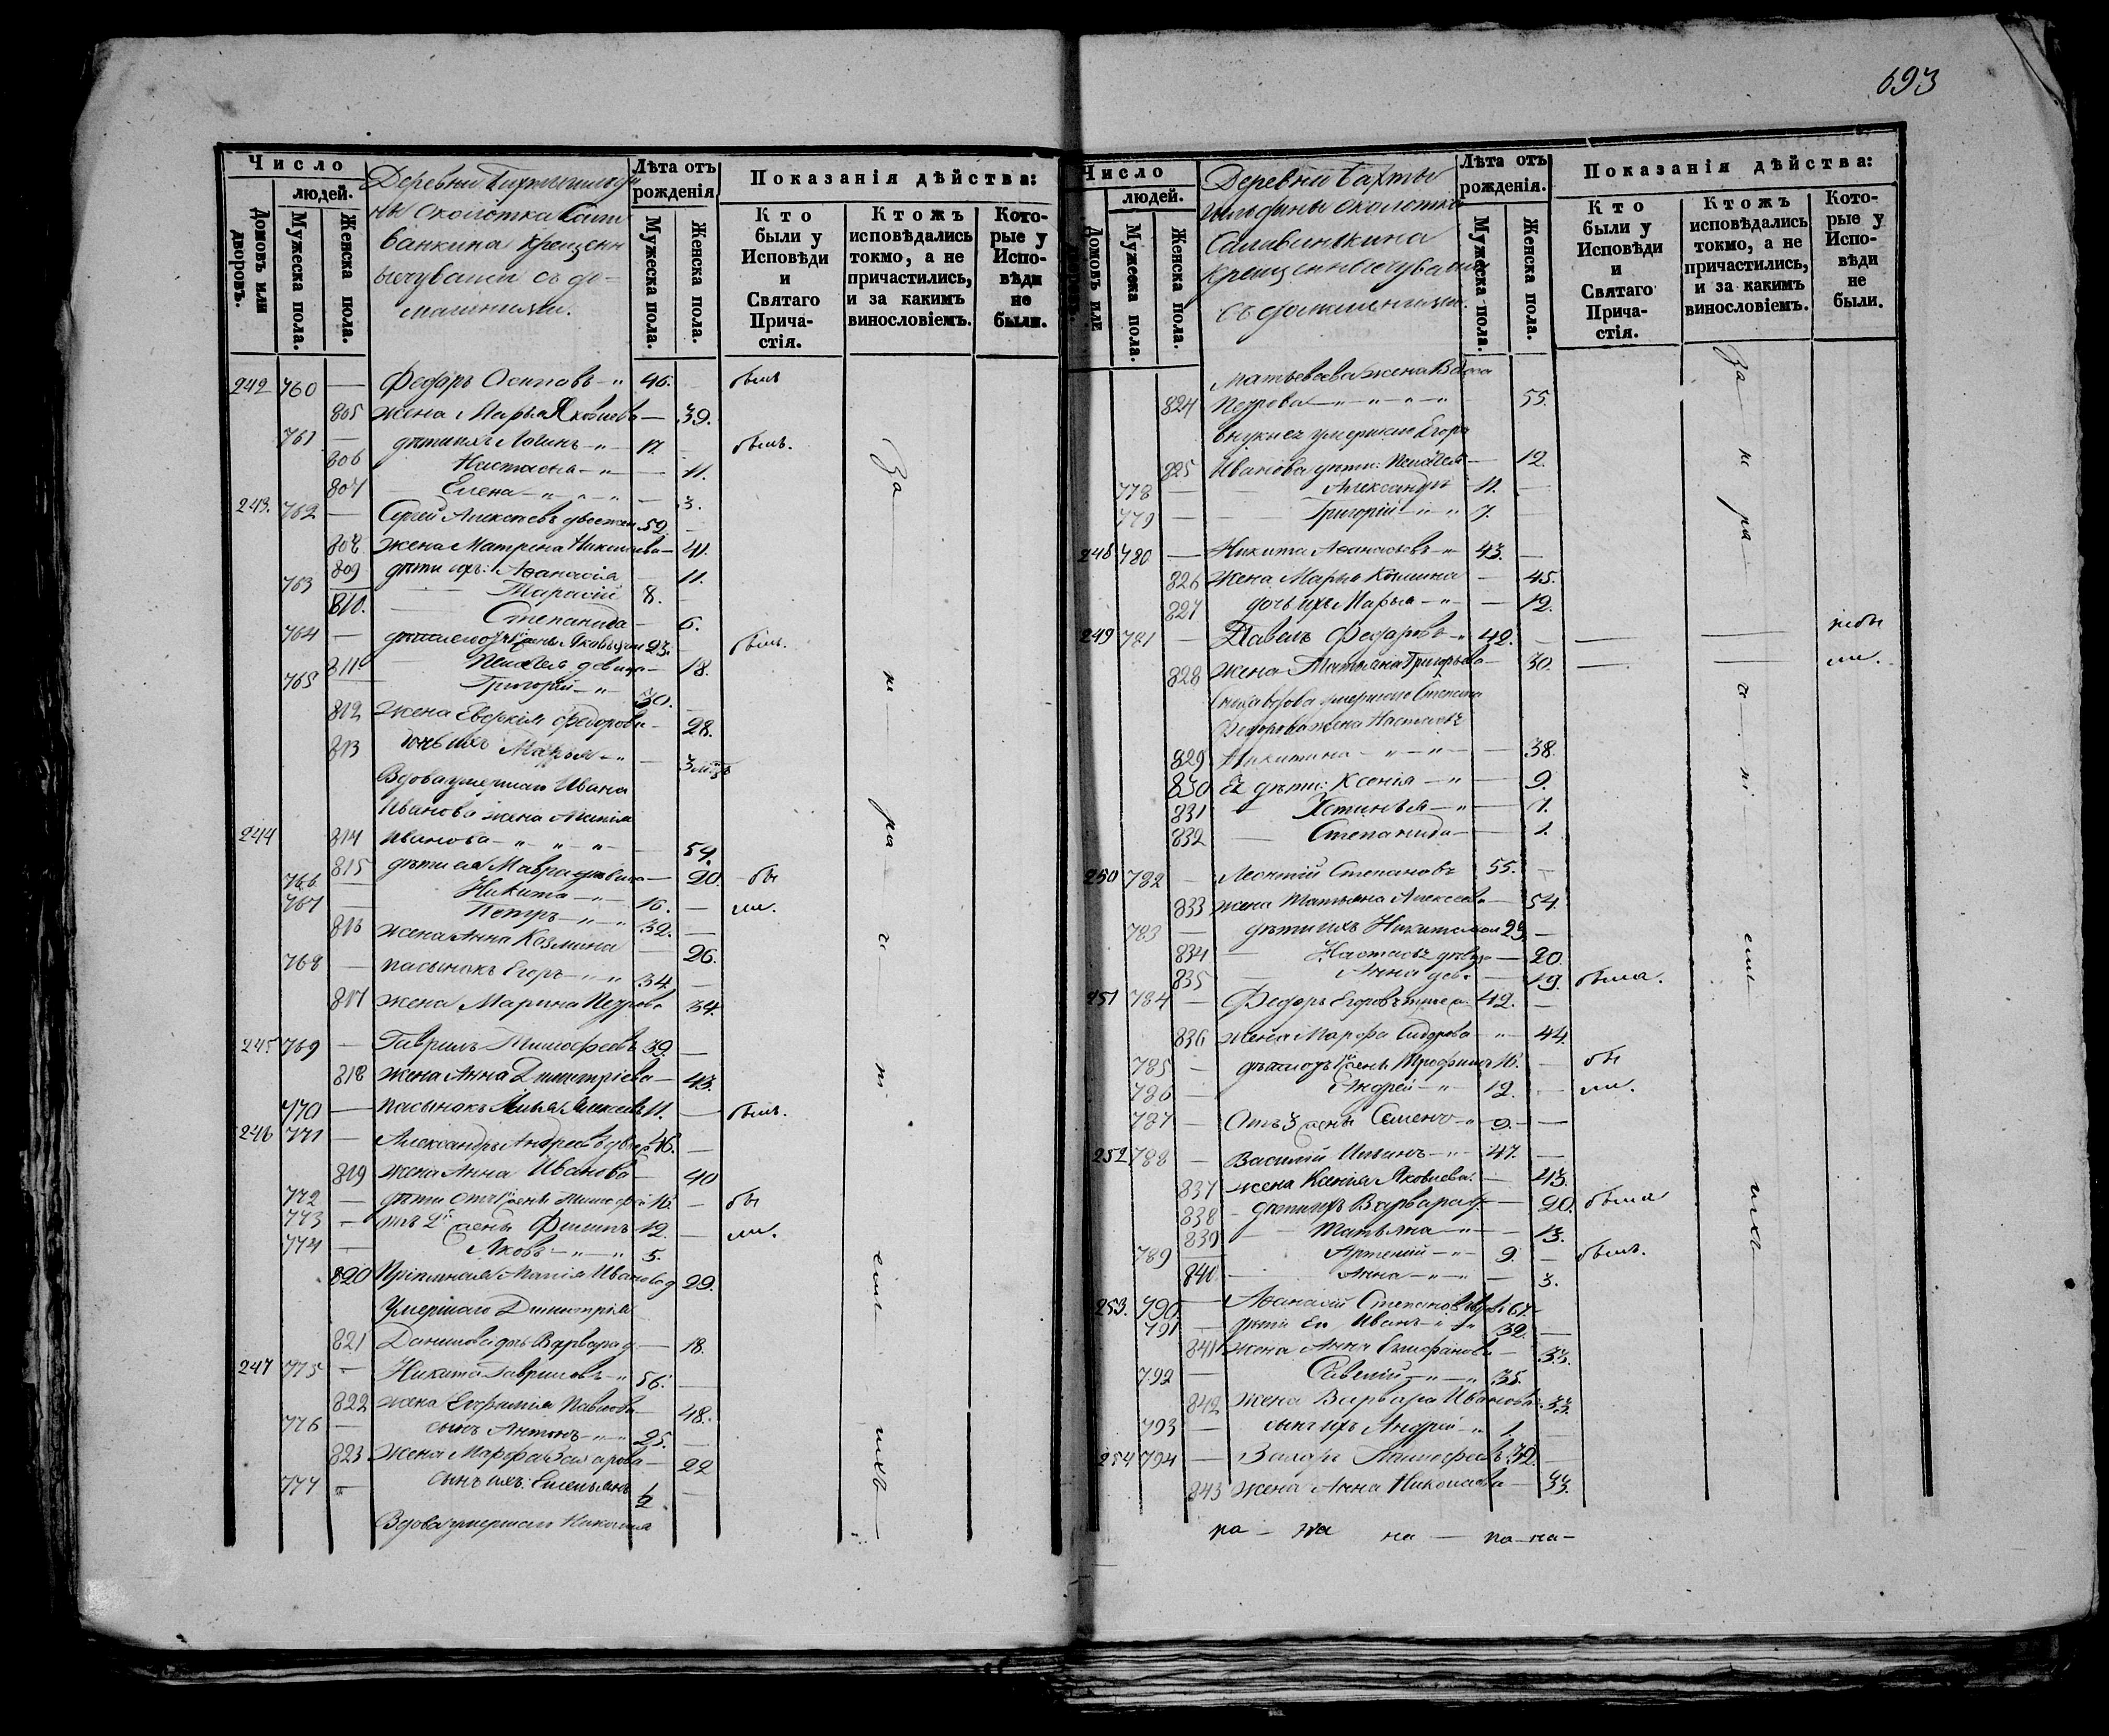 693
Число
людей.
Домовъ или дворовъ.
Мужеска пола.
Женска пола.
Деревни
ны околотка
ванкина крещен
ычуваши съ до=
машними.
Лѣта отъ рожденія
Мужеска пола.
Женска пола.
Показанія дѣйства:
Кто были у Исповѣди и Святаго Прича-стія.
Ктожъ исповѣдались токмо, а не причастились, и за какимъ винословіемъ.
Кото-рые у Испо-вѣди не были.
242 760 — Федоръ Осиповъ 46. былъ
805 жена Марья Яковлева — 39.
761 — дѣти ихъ Логинъ 17. былъ.
806 Настасья — 11.
807 Елена — 3.
243. 762 — Сергей Алексѣевъ 52. —
808 жена Матрена Николаева — 41.
809 дѣти ихъ: Афанасія — 11.
763 Тарасій 8. —
810. Степанида — 6.
764 — Яковъ 23. былъ.
811 Пелагея девица — 18.
765 Григорій 30. —
812 жена Евдокія Федорова — 28.
813 дочь ихъ Марья — 3
Вдова умершаго Ивана
Иванова жена
244 814 Иванова — 59.
815 дѣти ея Мавра девица — 20. бы
766 — Никита 16. — ли.
767 — Петръ 32. —
816 жена Анна Козмина 26.
768 — пасынокъ Егоръ 34 —
817 жена Марина Петрова 34.
245 769 — Гаврилъ Тимофеевъ 39. —
818 жена Анна Димитріева — 43.
770 — пасынокъ Илья Алексеевъ 11. — былъ.
246 771 — Александръ Андреевъ 46. —
819 жена Анна Иванова — 40
772 — дѣти отъ 1й жены Тимофей 16. — бы
773 — отъ 2й жены Филипъ 12. — ли.
774 — Яковъ 5.
820 Иванова д 29.
Умершаго Димитрія
821 Данилова дочь Варвара д — 18.
247 775 — Никита Гавриловъ 56. —
822 жена Евфимія Павлова — 48.
776 — сынъ Антонъ 25. —
823 жена Марфа Захарова — 22
777 — сынъ ихъ: Емельянъ 1/2 —
Вдова умершаго Николая
За — не — ра — че — ні — емъ — ихъ —
Число
людей.
Домовъ или дворовъ.
Мужеска пола.
Женска пола.
Деревни Бахты
гильдины околотка
крещенныечуваши
съ домашними.
Лѣта отъ рожденія.
Мужеска пола.
Женска пола.
Показанія дѣйства:
Кто были у Исповѣди и Святаго Прича-стія.
Ктожъ исповѣдались токмо, а не причастились, и за какимъ винословіемъ.
Кото-рые у Испо-вѣди не были.
Матвеева жена Васса
824 Петрова 55.
внуки ея умершаго Егора
825 Иванова дѣти: Пелагея — 12.
778 — Александръ 11. —
779 — Григорій 7. —
248 780 — Никита Афанасьевъ 43. —
826 жена Марья Козмина — 45.
827 дочь ихъ Марья — 12.
249 781 — Павелъ Федоровъ 42. — небы
828 жена Татьяна Григорьева — 30. — ли.
умершаго Степана
Федорова жена Настасья
829 Никитина — 38.
830 Ея дѣти: Ксенія — 9.
831 Устинья — 7.
832 Степанида — 1.
250 782 — Леонтій Степановъ 55. —
833 жена Татьяна Алексеева — 54.
783 — дѣти ихъ Никита 23. —
834 Настасья девица — 20.
835 Анна дев. — 19. была.
251 784 — Федоръ Егоровъ 42. —
836 жена Марфа Сидорова — 44.
785 — Трофимъ 16. — бы
786 — Андрей 12. — ли.
787 — Отъ 3 жены Семенъ 2. —
252 788 — Василій Ильинъ 47. —
837 жена Ксенія Яковлева. — 43.
838 дѣти ихъ Варвара д — 20. была
839 Татьяна — 13.
789 — Артемій 9. — былъ.
840 — Анна — 3.
253. 790 — Афанасій Степановъ вдов. 67. —
791 — дѣти его Иванъ 32. —
841 жена Анна Епифанова — 33.
792 — Савелій 35.
842 жена Варвара Иванова 33.
793 — сынъ ихъ Андрей 1. —
254 794 — Захаръ Тимофеевъ 42. —
843 жена Анна Николаева 33.
За — не — ра — че — ні — емъ — ихъ —